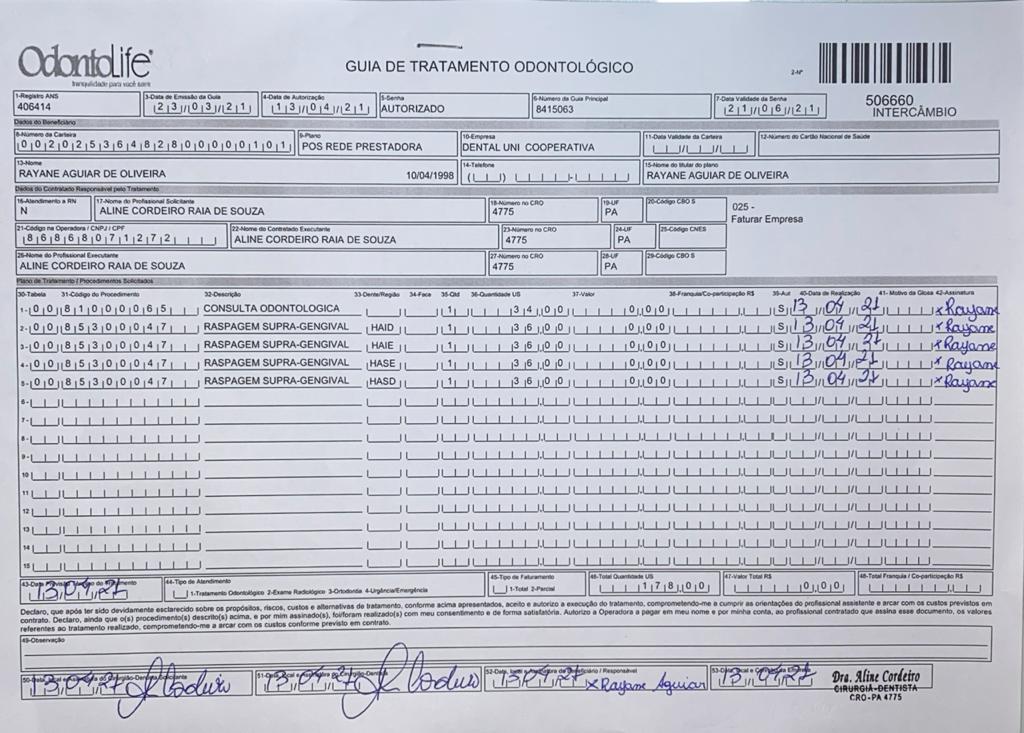 OdontoLife
tranquilidade para você sorrir
GUIA DE TRATAMENTO ODONTOLÓGICO
2-Nº
506660
INTERCÂMBIO
1-Registro ANS 3-Data de Emissão da Guia 4-Data de Autorização 5-Senha 6-Número da Guia Principal 7-Data Validade da Senha
406414 23/03/21 13/04/21 AUTORIZADO 8415063 21/06/21
Dados do Beneficiário
8-Número da Carteira 9-Plano 10-Empresa 11-Data Validade da Carteira 12-Número do Cartão Nacional de Saúde
00202536482800000101 POS REDE PRESTADORA DENTAL UNI COOPERATIVA
13-Nome 14-Telefone 15-Nome do titular do plano
RAYANE AGUIAR DE OLIVEIRA 10/04/1998 RAYANE AGUIAR DE OLIVEIRA
Dados do Contratado Responsável pelo Tratamento
16-Atendimento a RN 17-Nome do Profissional Solicitante 18-Número no CRO 19-UF 20-Código CBO S
N ALINE CORDEIRO RAIA DE SOUZA 4775 PA
025 -
Faturar Empresa
21-Código na Operadora / CNPJ / CPF 22-Nome do Contratado Executante 23-Número no CRO 24-UF 25-Código CNES
86868071272 ALINE CORDEIRO RAIA DE SOUZA 4775 PA
26-Nome do Profissional Executante 27-Número no CRO 28-UF 29-Código CBO S
ALINE CORDEIRO RAIA DE SOUZA 4775 PA
Plano de Tratamento / Procedimentos Solicitados
30-Tabela 31-Código do Procedimento 32-Descrição 33-Dente/Região 34-Face 35-Qtd 36-Quantidade US 37-Valor 38-Franquia/Co-participação R$ 39-Aut 40-Data de Realização 41- Motivo da Glosa 42-Assinatura
1- 00 81000065 CONSULTA ODONTOLOGICA 1 34,00 0,00 S 13/04/21 x Rayane
2- 00 85300047 RASPAGEM SUPRA-GENGIVAL HAID 1 36,00 0,00 S 13/04/21 x Rayane
3- 00 85300047 RASPAGEM SUPRA-GENGIVAL HAIE 1 36,00 0,00 S 13/04/21 x Rayane
4- 00 85300047 RASPAGEM SUPRA-GENGIVAL HASE 1 36,00 0,00 S 13/04/21 x Rayane
5- 00 85300047 RASPAGEM SUPRA-GENGIVAL HASD 1 36,00 0,00 S 13/04/21 x Rayane
6-
7-
8-
9-
10
11
12
13
14
15
43-Data 44-Tipo de Atendimento 45-Tipo de Faturamento 46-Total Quantidade US 47-Valor Total R$ 48-Total Franquia / Co-participação R$
13/04/21 1-Tratamento Odontológico 2-Exame Radiológico 3-Ortodontia 4-Urgência/Emergência 1-Total 2-Parcial 178,00 0,00
Declaro, que após ter sido devidamente esclarecido sobre os propósitos, riscos, custos e alternativas de tratamento, conforme acima apresentados, aceito e autorizo a execução do tratamento, comprometendo-me a cumprir as orientações do profissional assistente e arcar com os custos previstos em
contrato. Declaro, ainda que o(s) procedimento(s) descrito(s) acima, e por mim assinado(s), foi/foram realizado(s) com meu consentimento e de forma satisfatória. Autorizo a Operadora a pagar em meu nome e por minha conta, ao profissional contratado que assina esse documento, os valores
referentes ao tratamento realizado, comprometendo-me a arcar com os custos conforme previsto em contrato.
49-Observação
13/04/21 13/04/21 13/04/21 x Rayane Aguiar 13/04/21
Dra. Aline Cordeiro
CIRURGIÃ-DENTISTA
CRO-PA 4775